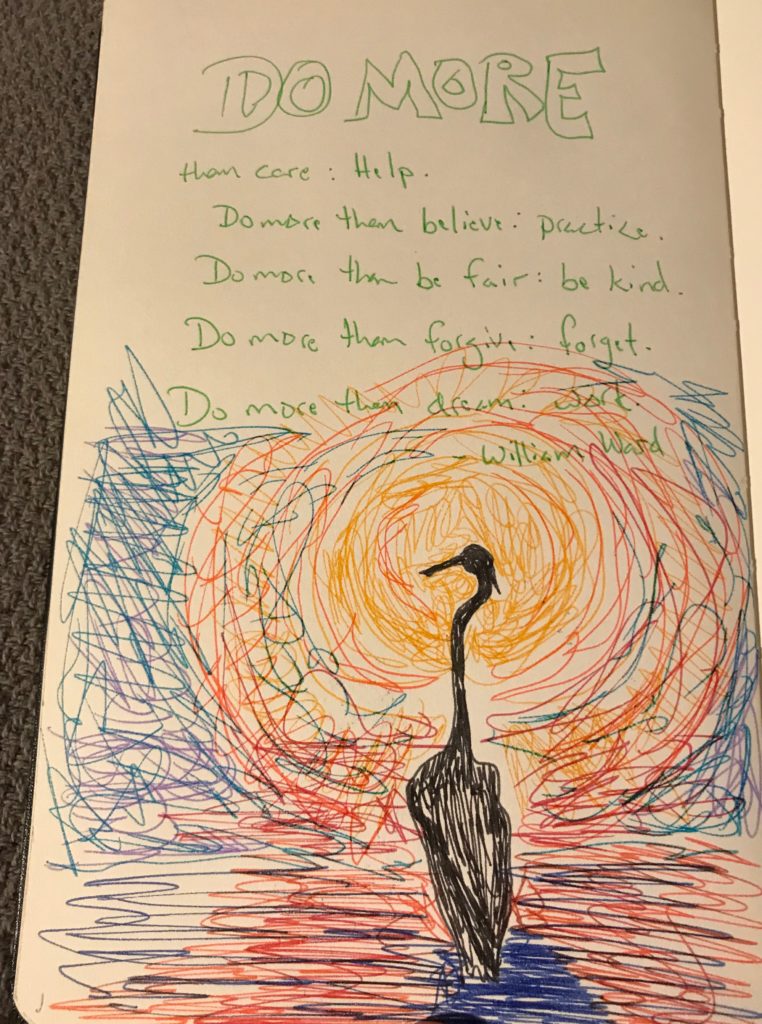 DO MORE
than care : Help.
Do more than believe : practice.
Do more than be fair : be kind.
Do more than forgive : forget.
Do more than dream : work.
- William Ward